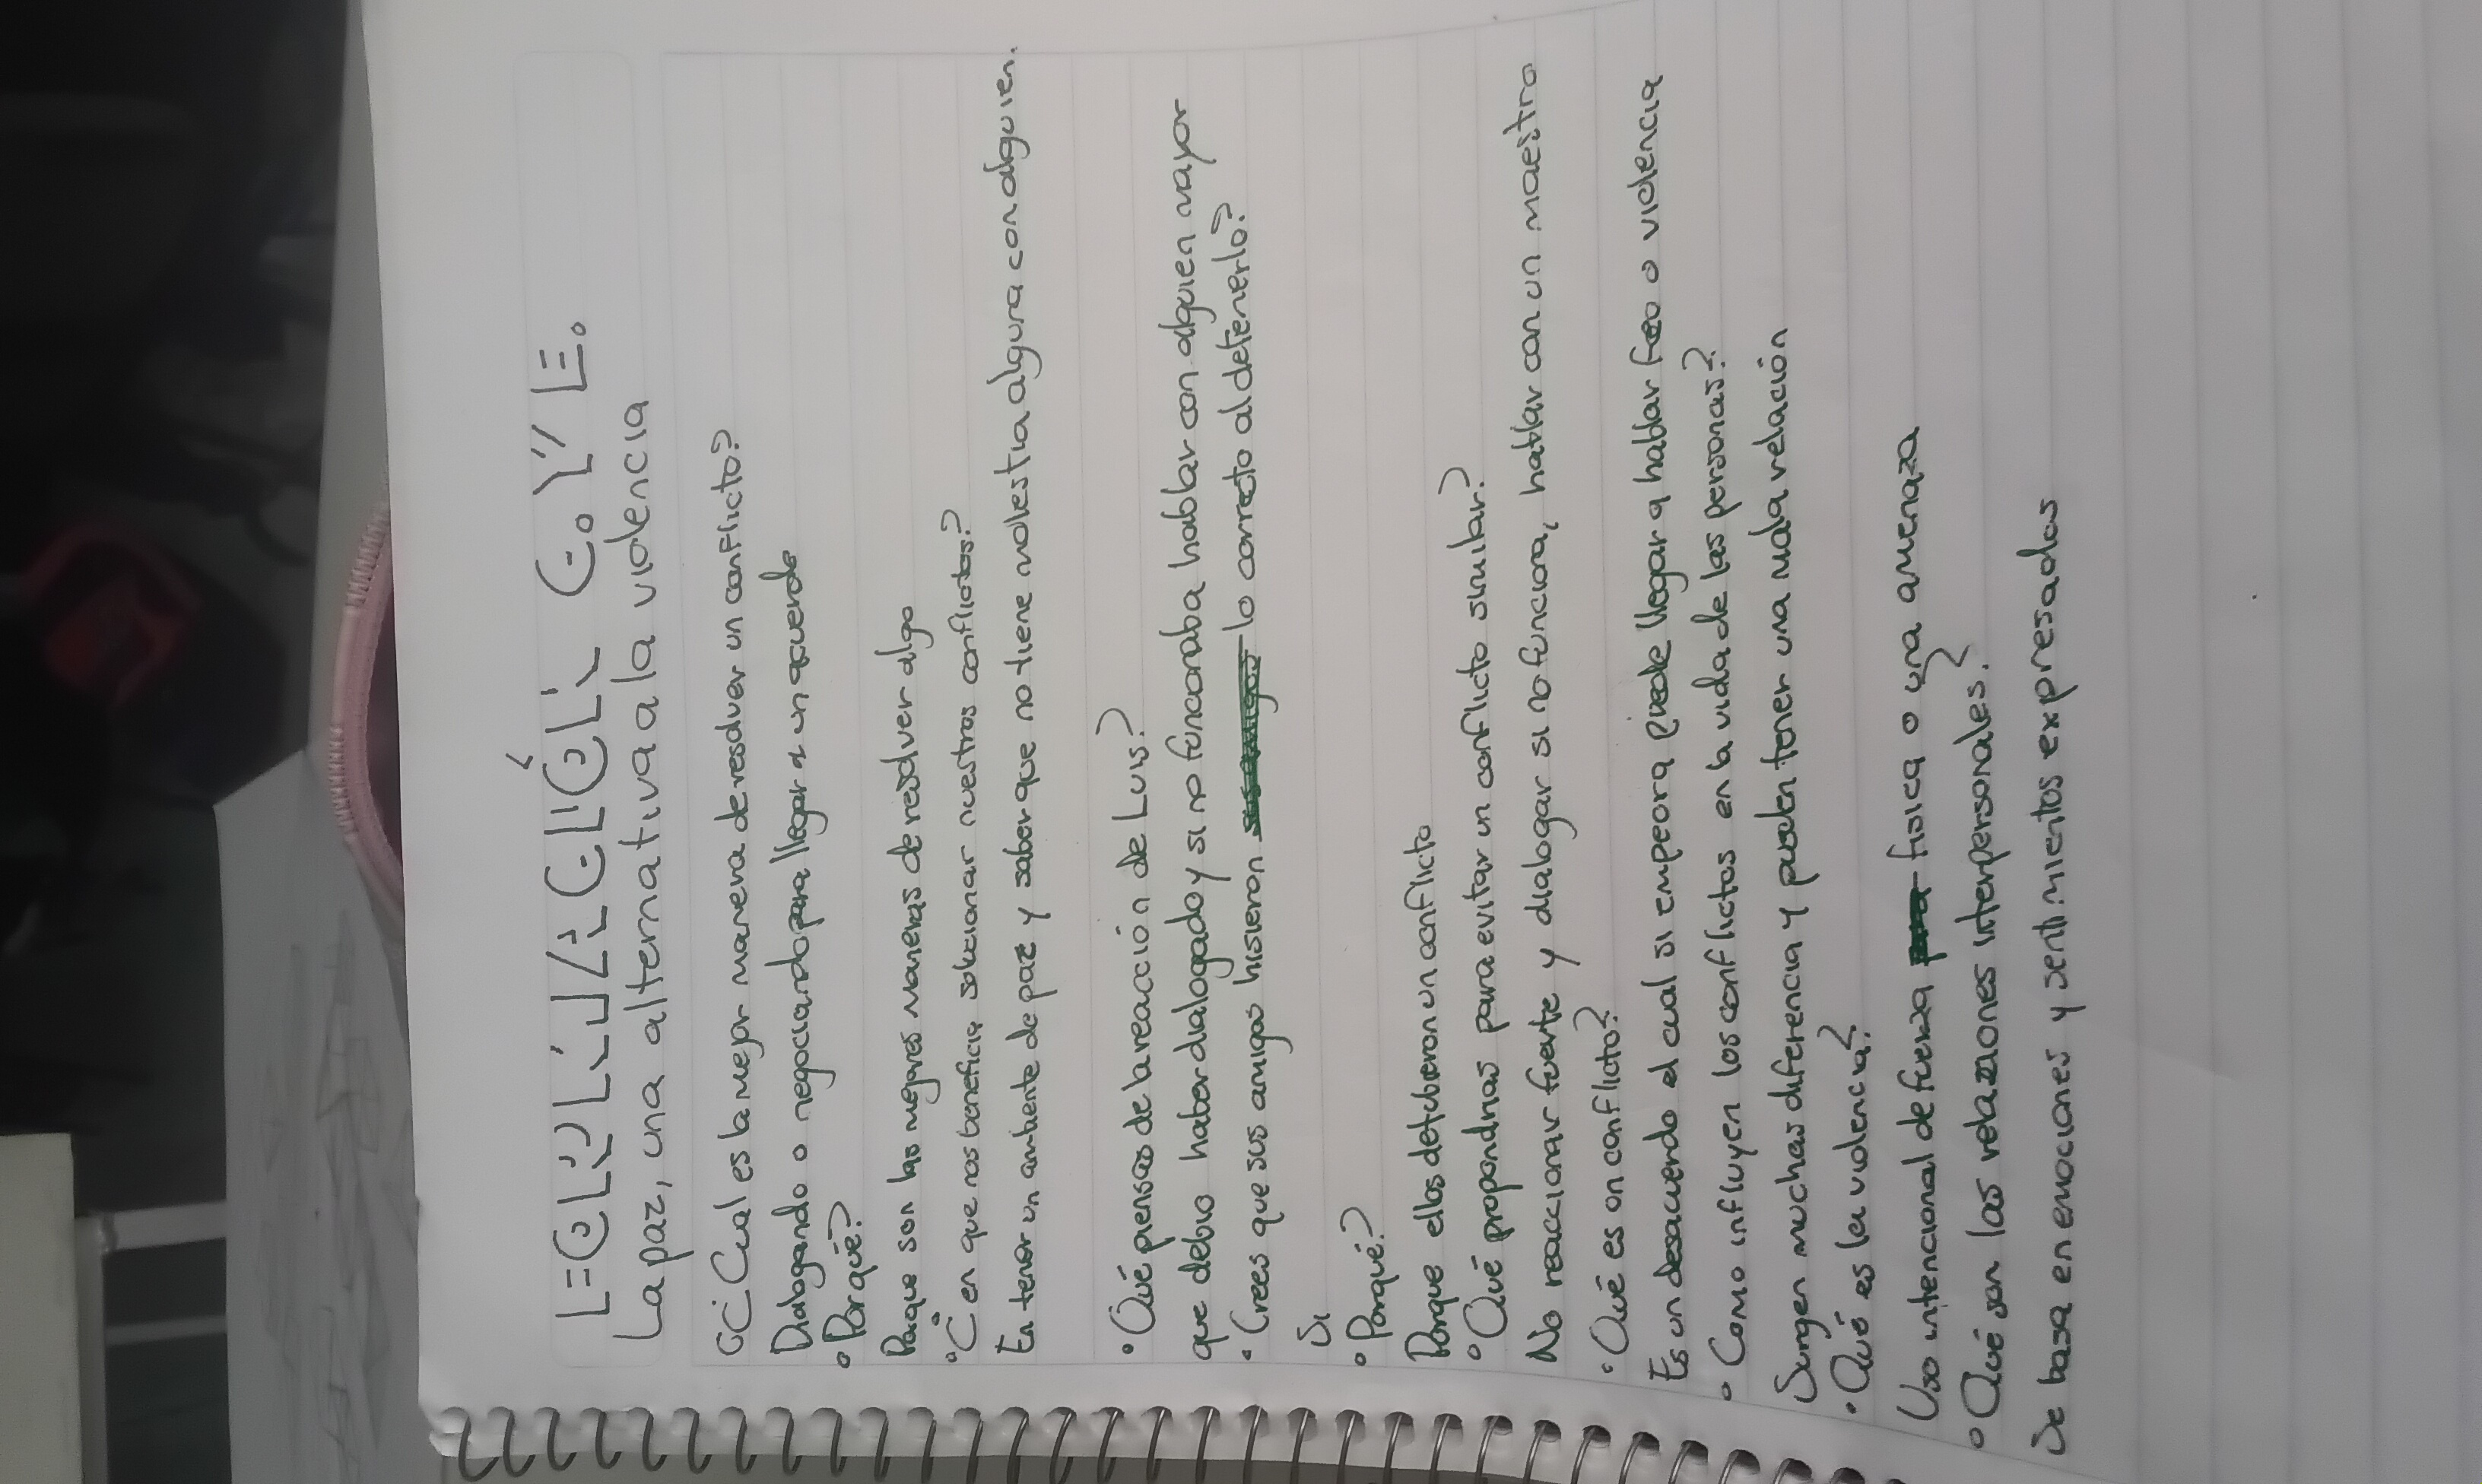 FORMACIÓN C. Y E.
La paz, una alternativa a la violencia
¿Cual es la mejor manera de resolver un conflicto?
Dialogando o negociando para llegar a un acuerdo
• Por qué?
Paque son las mejores maneras de resolver algo
• ¿en que nos beneficia solucionar nuestros conflictos?
En tener un ambiente de paz y saber que no tiene molestia alguna con alguien.
• Qué piensas de la reacción de Luis?
que debio haber dialogado y si no funcionaba hablar con alguien mayor
• Crees que sus amigos hisieron lo correcto al detenerlo?
Si
• Porqué?
Porque ellos detubieron un conflicto
• Qué propondrias para evitar un conflicto similar?
No reaccionar fuerte y dialogar si no funciona, hablar con un maestro
• Qué es on conflicto?
Es un desacuerdo el cual si empeora puede llegar a hablar feo o violencia
• Como influyen los conflictos en la vida de las personas?
Surgen muchas diferencia y pueden tener una mala relación
• Qué es la violencia?
Uso intencional de fuerza fisica o una amenaza
• Qué son las relaziones interpersonales?
Se basa en emociones y sentimientos expresados